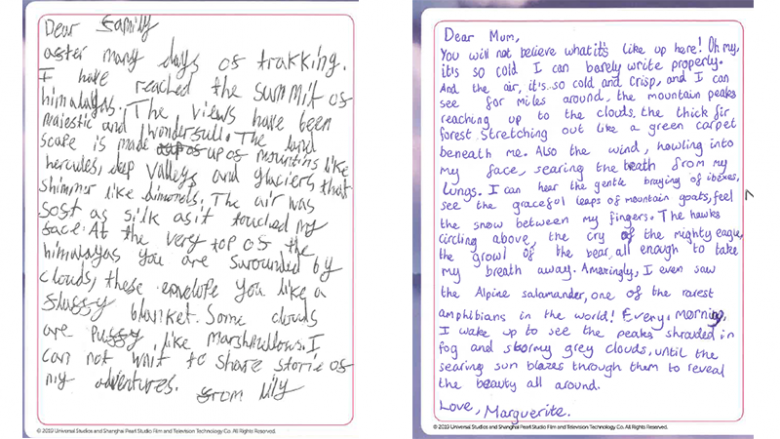 Dear Family
after many days of trakking.
I have reached the summit of
himalayas. The views have been
majestic and wondersull. The land
scape is made up of mountins like
hercules, deep valleys and glaciers that
shimmer like dimonds. The air was
soft as silk as it touched my
face. At the very top of the
himalayas you are surounded by
clouds, these envelope you like a
fluffy blanket. Some clouds
are puffy, like marshmllows. I
can not wait to share storie of
my adventures. from lily
© 2019 Universal Studios and Shanghai Pearl Studio Film and Television Technology Co. All Rights Reserved.
Dear Mum,
You will not believe what it's like up here! Oh my,
it's so cold I can barely write properly.
And the air, it's so cold and crisp, and I can
see for miles around, the mountain peaks
reaching up to the clouds, the thick fir
forest stretching out like a green carpet
beneath me. Also the wind, howling into
my face, searing the breath from my
lungs. I can hear the gentle braying of ibexes,
see the graceful leaps of mountain goats, feel
the snow between my fingers. The hawks
circling above, the cry of the mighty eagle,
the growl of the bear, all enough to take
my breath away. Amazingly, I even saw
the Alpine salamander, one of the rarest
amphibians in the world! Every morning,
I wake up to see the peaks shrouded in
fog and stormy grey clouds, until the
searing sun blazes through them to reveal
the beauty all around.
Love, Marguerite.
© 2019 Universal Studios and Shanghai Pearl Studio Film and Television Technology Co. All Rights Reserved.